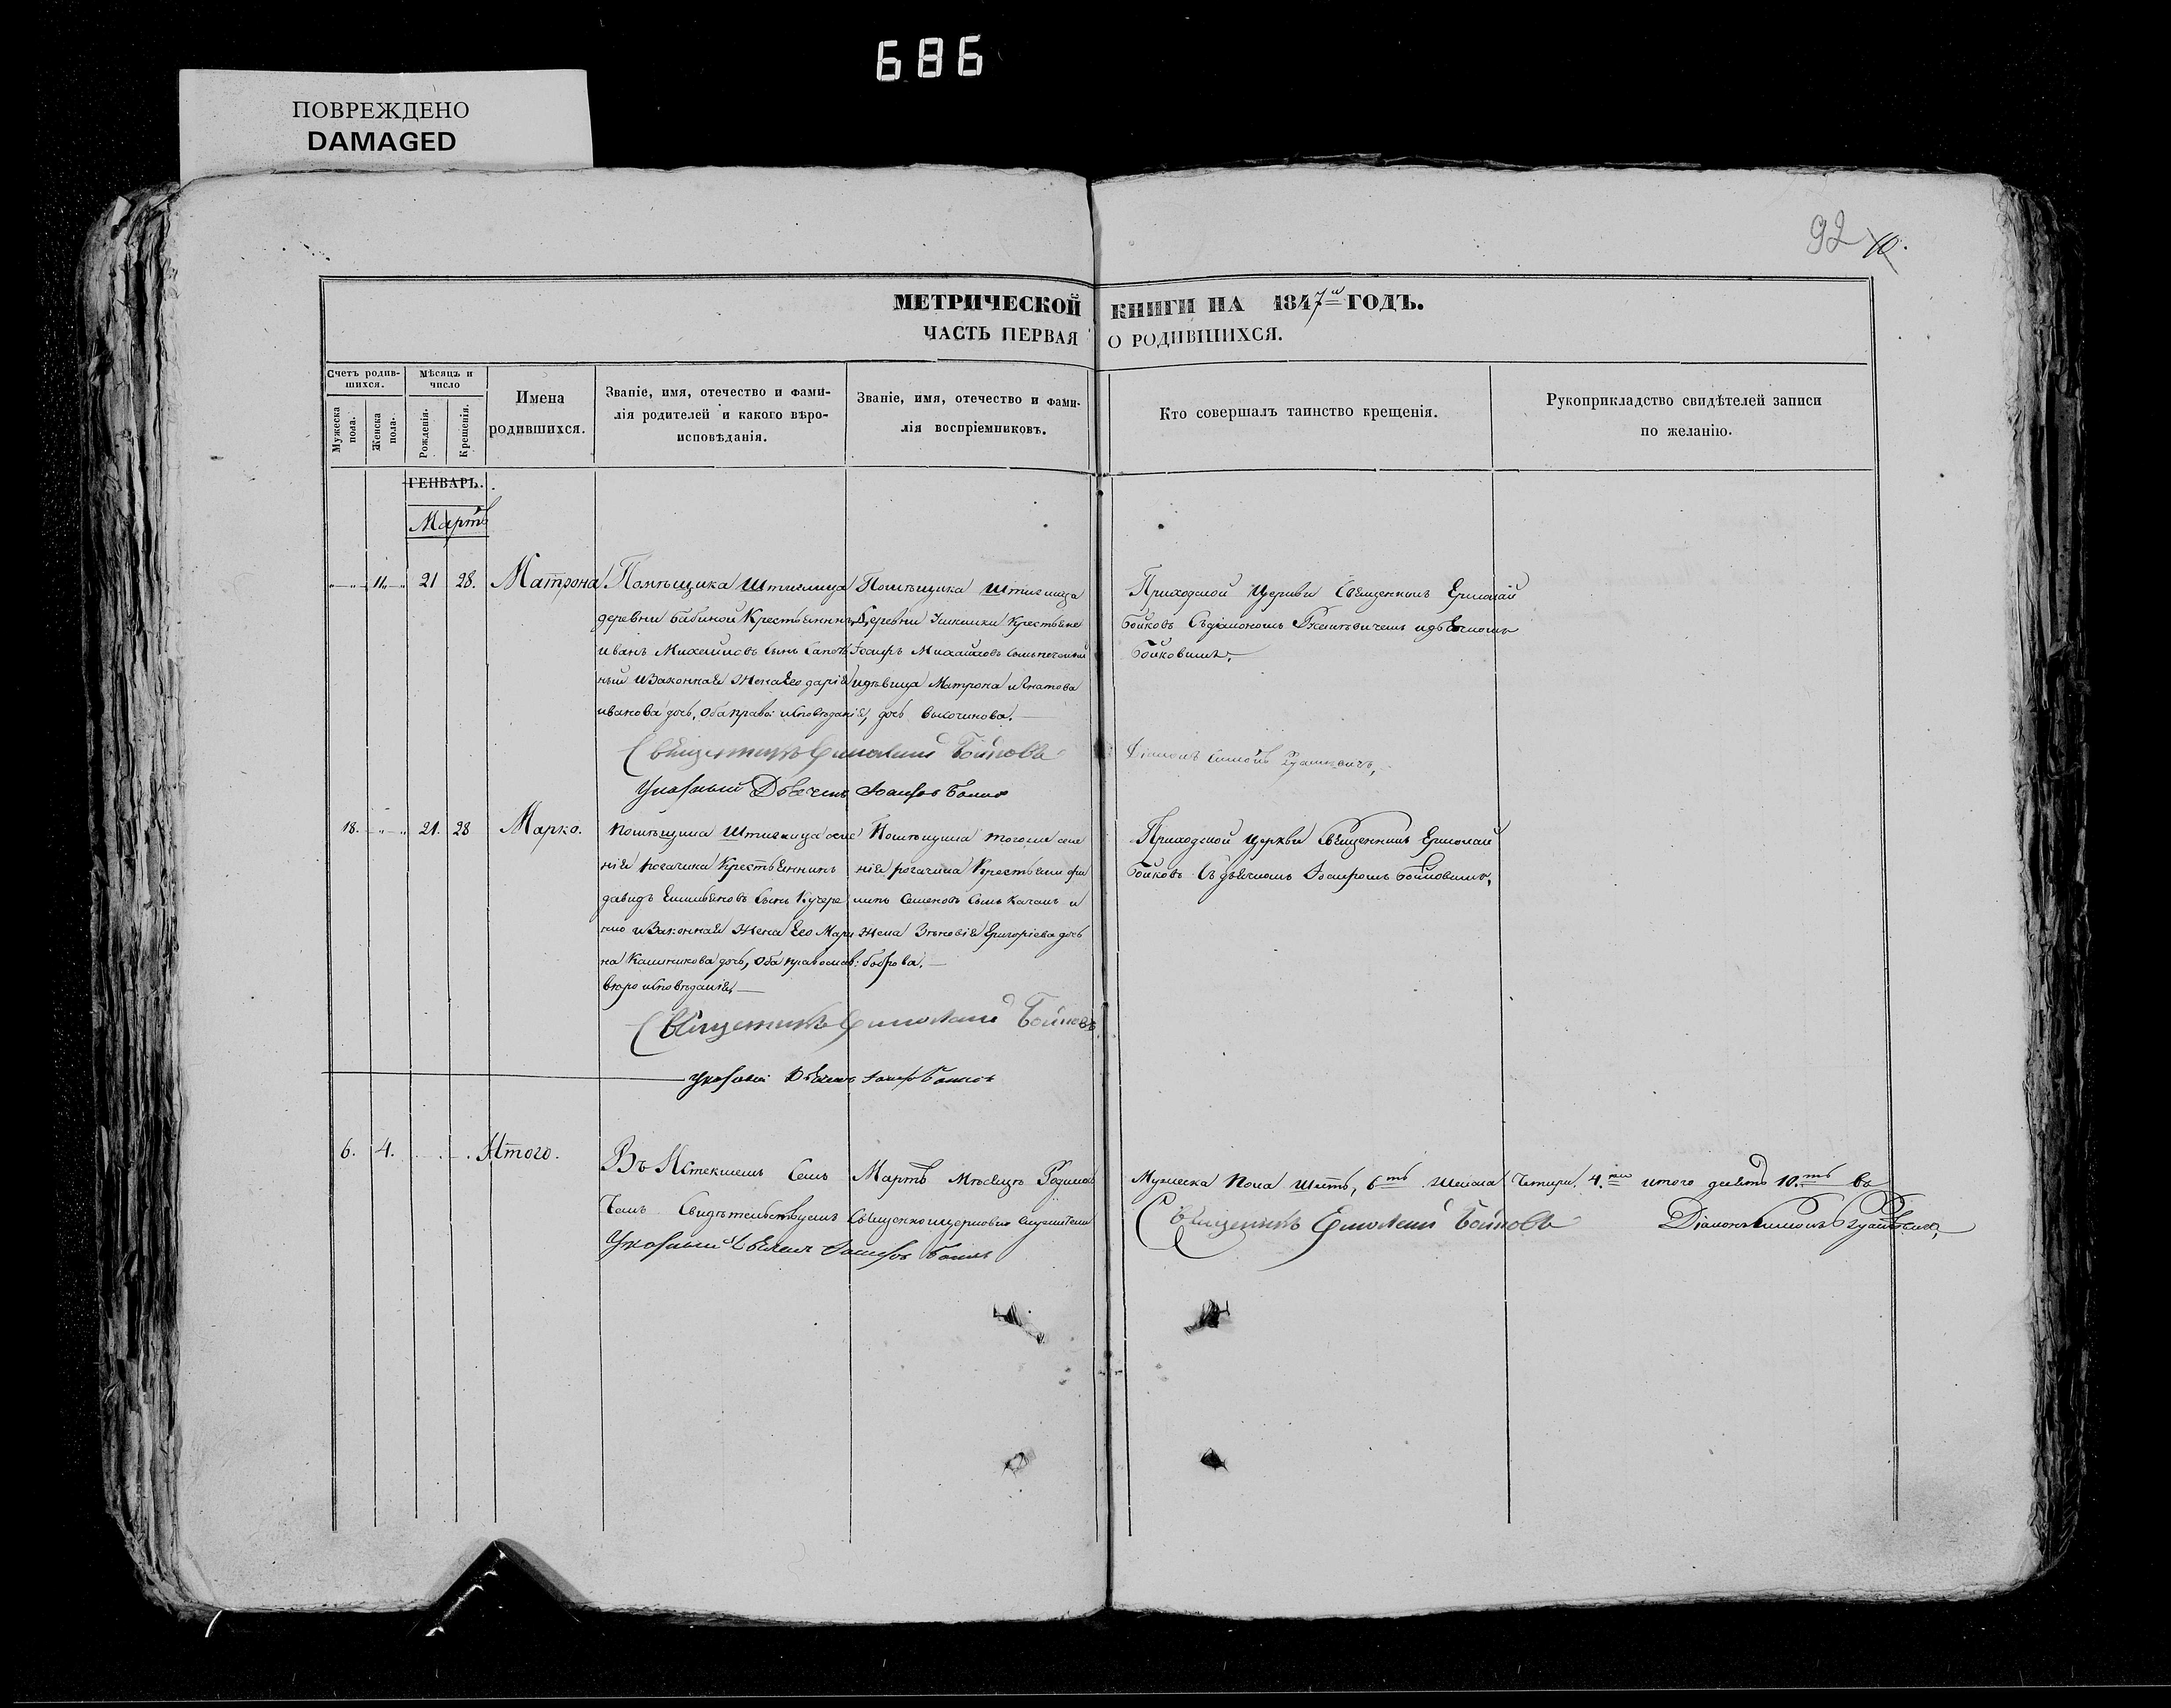 686
ПОВРЕЖДЕНО
DAMAGED
92 10.
МЕТРИЧЕСКОЙ КНИГИ НА 1847й ГОДЪ.
ЧАСТЬ ПЕРВАЯ О РОДИВШИХСЯ.
Счетъ родив-
шихся.
Мужеска
пола.
Женска
пола.
Мѣсяцъ и
число
Рожденія.
Крещенія.
Имена
родившихся.
Званіе, имя, отечество и фами-
лія родителей и какого вѣро-
исповѣданія.
Званіе, имя, отечество и фами-
лія воспріемниковъ.
Кто совершалъ таинство крещенія.
Рукоприкладство свидѣтелей записи
по желанію.
ГЕНВАРЬ.
Мартъ
11 21 28. Матрона
Помѣщика Штиглица
деревни Бабиной Крестьянинъ
иванъ Михайловъ сынъ
ный и Законная Жена Его дарія
иванова дочь, Оба право: исповѣданія,
Помѣщика Штиглица
Деревни Крестьяне
Іосифъ Михайловъ сынъ
и дѣвица Матрона Игнатова
дочь
Приходской Церкви Священникъ Ермолай
Бойковъ Съ діакономъ и дьячкомъ
Бойковымъ.
Священникъ Ермолай Бойковъ
Указный Дьячекъ Іосифъ Бойко
Діаконъ Симонъ
18. 21. 28 Марко.
Помѣщика Штиглица селе
нія рогачика Крестьянинъ
давидъ Емильяновъ Сынъ Кучере
нко и Законная Жена Его Мари
на дочь, Оба православ:
вѣро исповѣданія
Помѣщика того же селе
нія рогачика Крестьяни фи
липъ Семеновъ Сынъ Качанъ и
Жена Зѣновія Григоріева дочь
боброва.
Приходской Церкви Священникъ Ермолай
Бойковъ Съ дьячкомъ Іосифомъ Бойковымъ,
Священникъ Ермолай Бойковъ
Указный Дьячекъ Іосифъ Бойковъ
6. 4. Итого.
Въ Истекшемъ Семъ Мартѣ Мѣсяцѣ Родилось Мужеска Пола Шесть, 6ть Женска Четыри 4ри итого десять 10.ть Во
Чемъ Свидѣтельствуемъ Священноцерковно служители Священникъ Ермолай Бойковъ Діаконъ Симонъ
Указный Дьячекъ Іосифъ Бойко